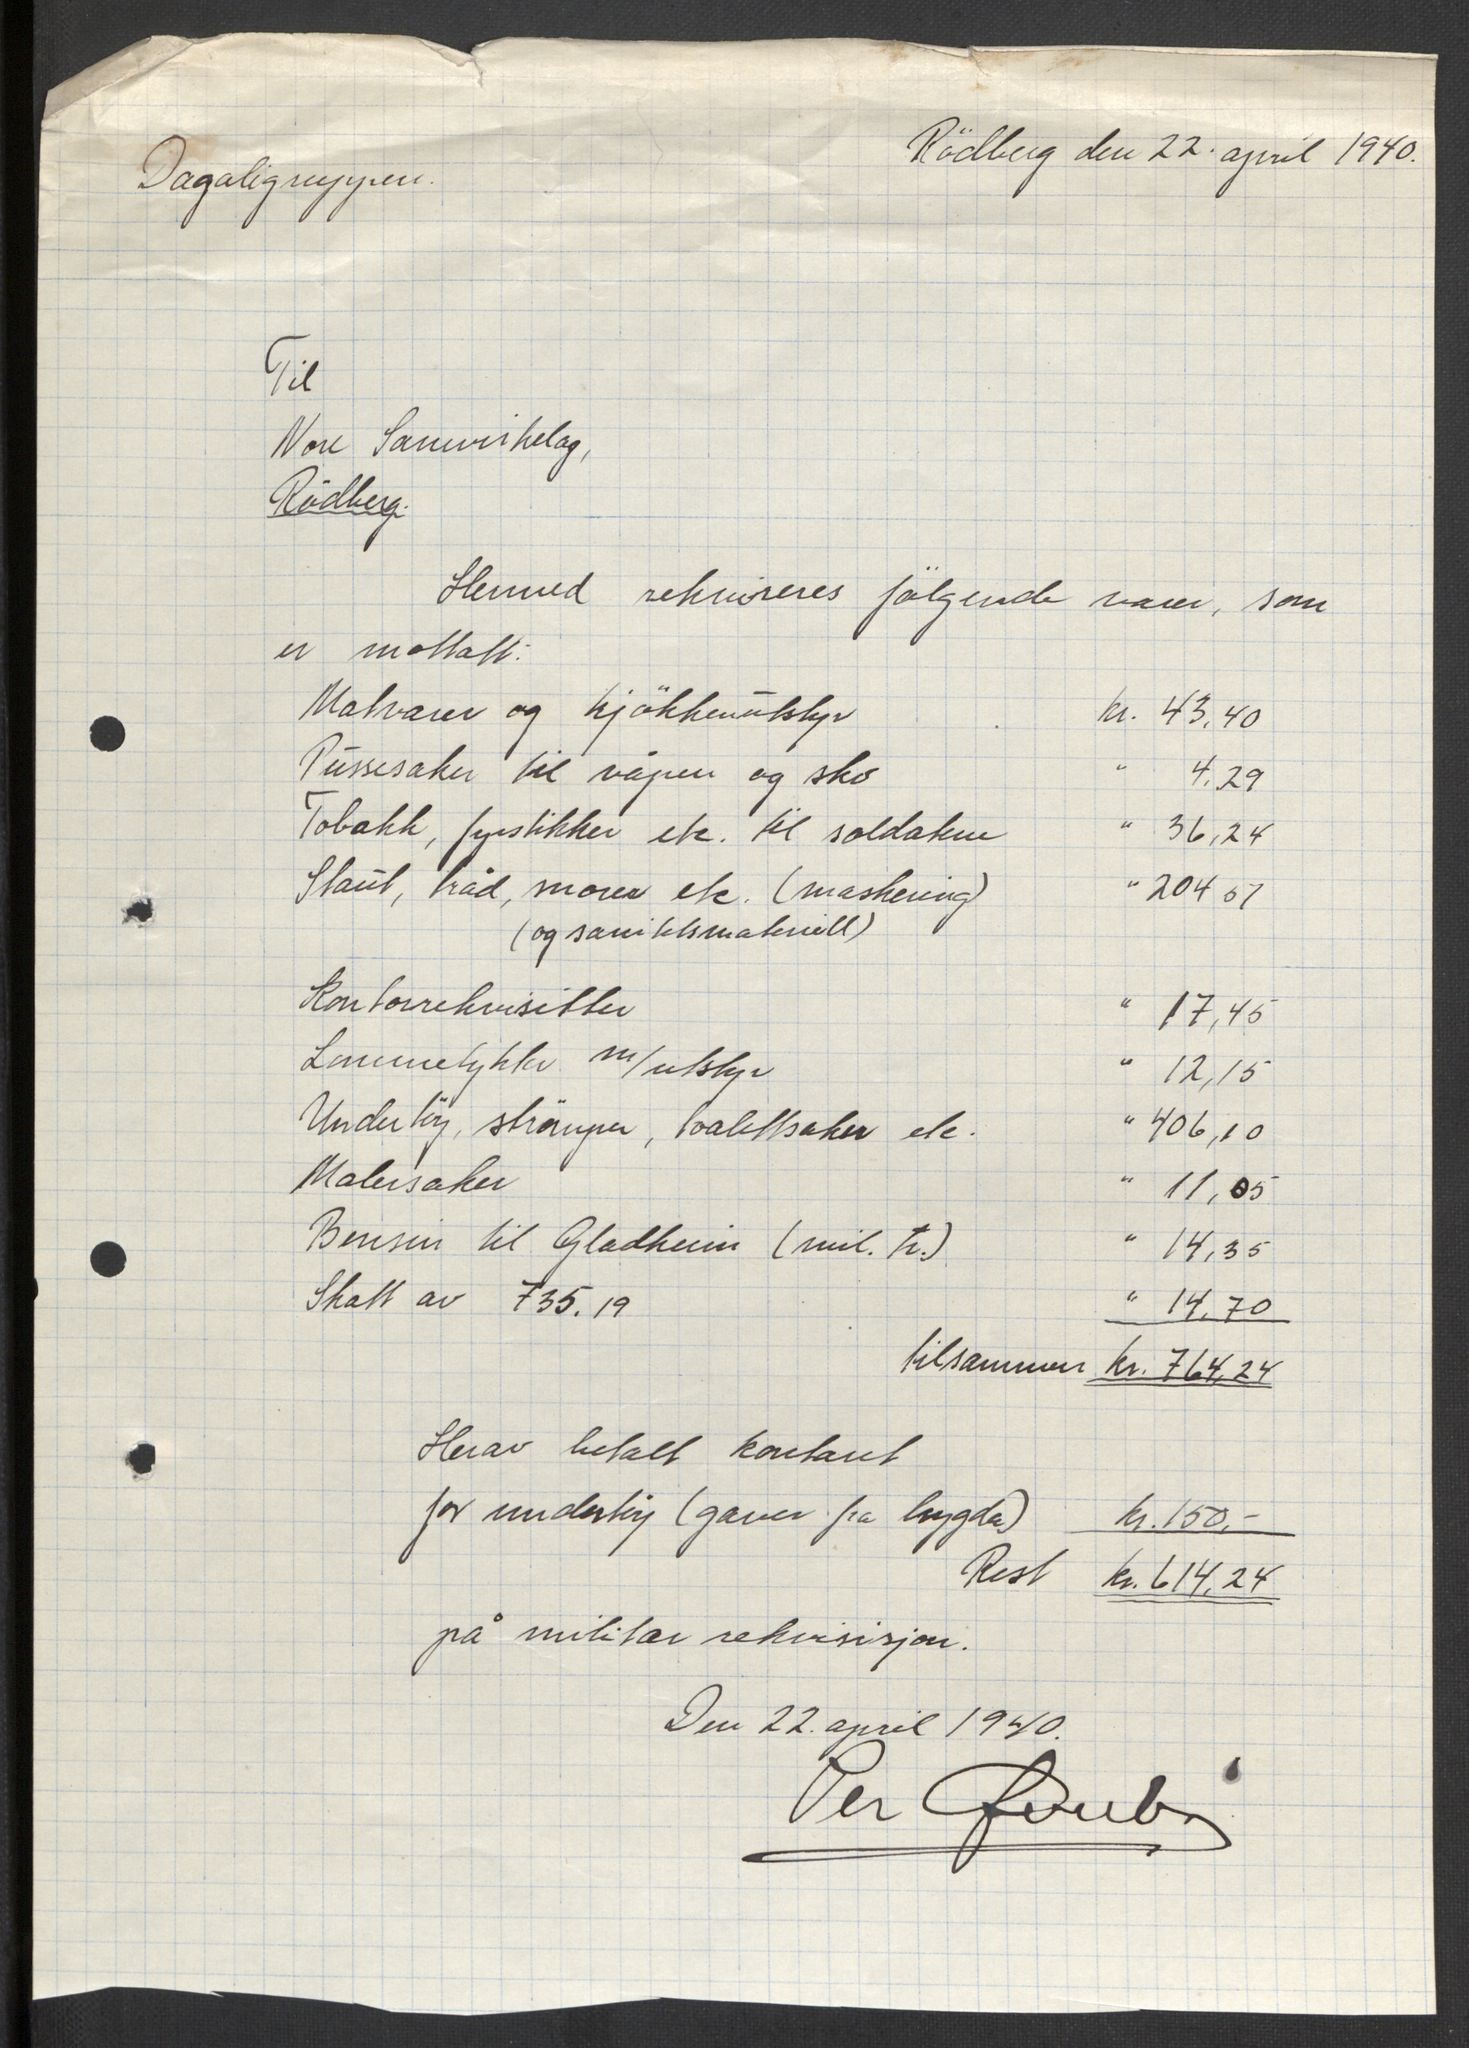 Rödberg den 22. april 1940.
Dagaligruppen.
Til
Nore Samvirkelag,
Rödberg.
Hermed rekvireres følgende varer, som
er mottatt:
Matvarer og kjökkenutstyr kr. 43,40
Püssesaker til våpen og sko " 4,29
Tobakk, fyrstikker etc. til soldatene " 36,24
Staut, tråd, snorer etc. (maskering) " 204 57
(og sanitetsmateriell)
Kontorrekvisitter " 17,45
Lommelykter m/utstyr " 12,15
Undertöy, strömper, toalettsaker etc. " 406,10
Malersaker " 11,05
Bensin til Gladheim (mil. tr.) " 14,35
Skatt av 735.19 " 14,70
tilsammen kr. 764,24
Herav betalt kontant
for undertöy (gaver fra bygda) kr. 150,-
Rest kr. 614,24
på militær rekvisisjon.
Den 22. april 1940.
Per